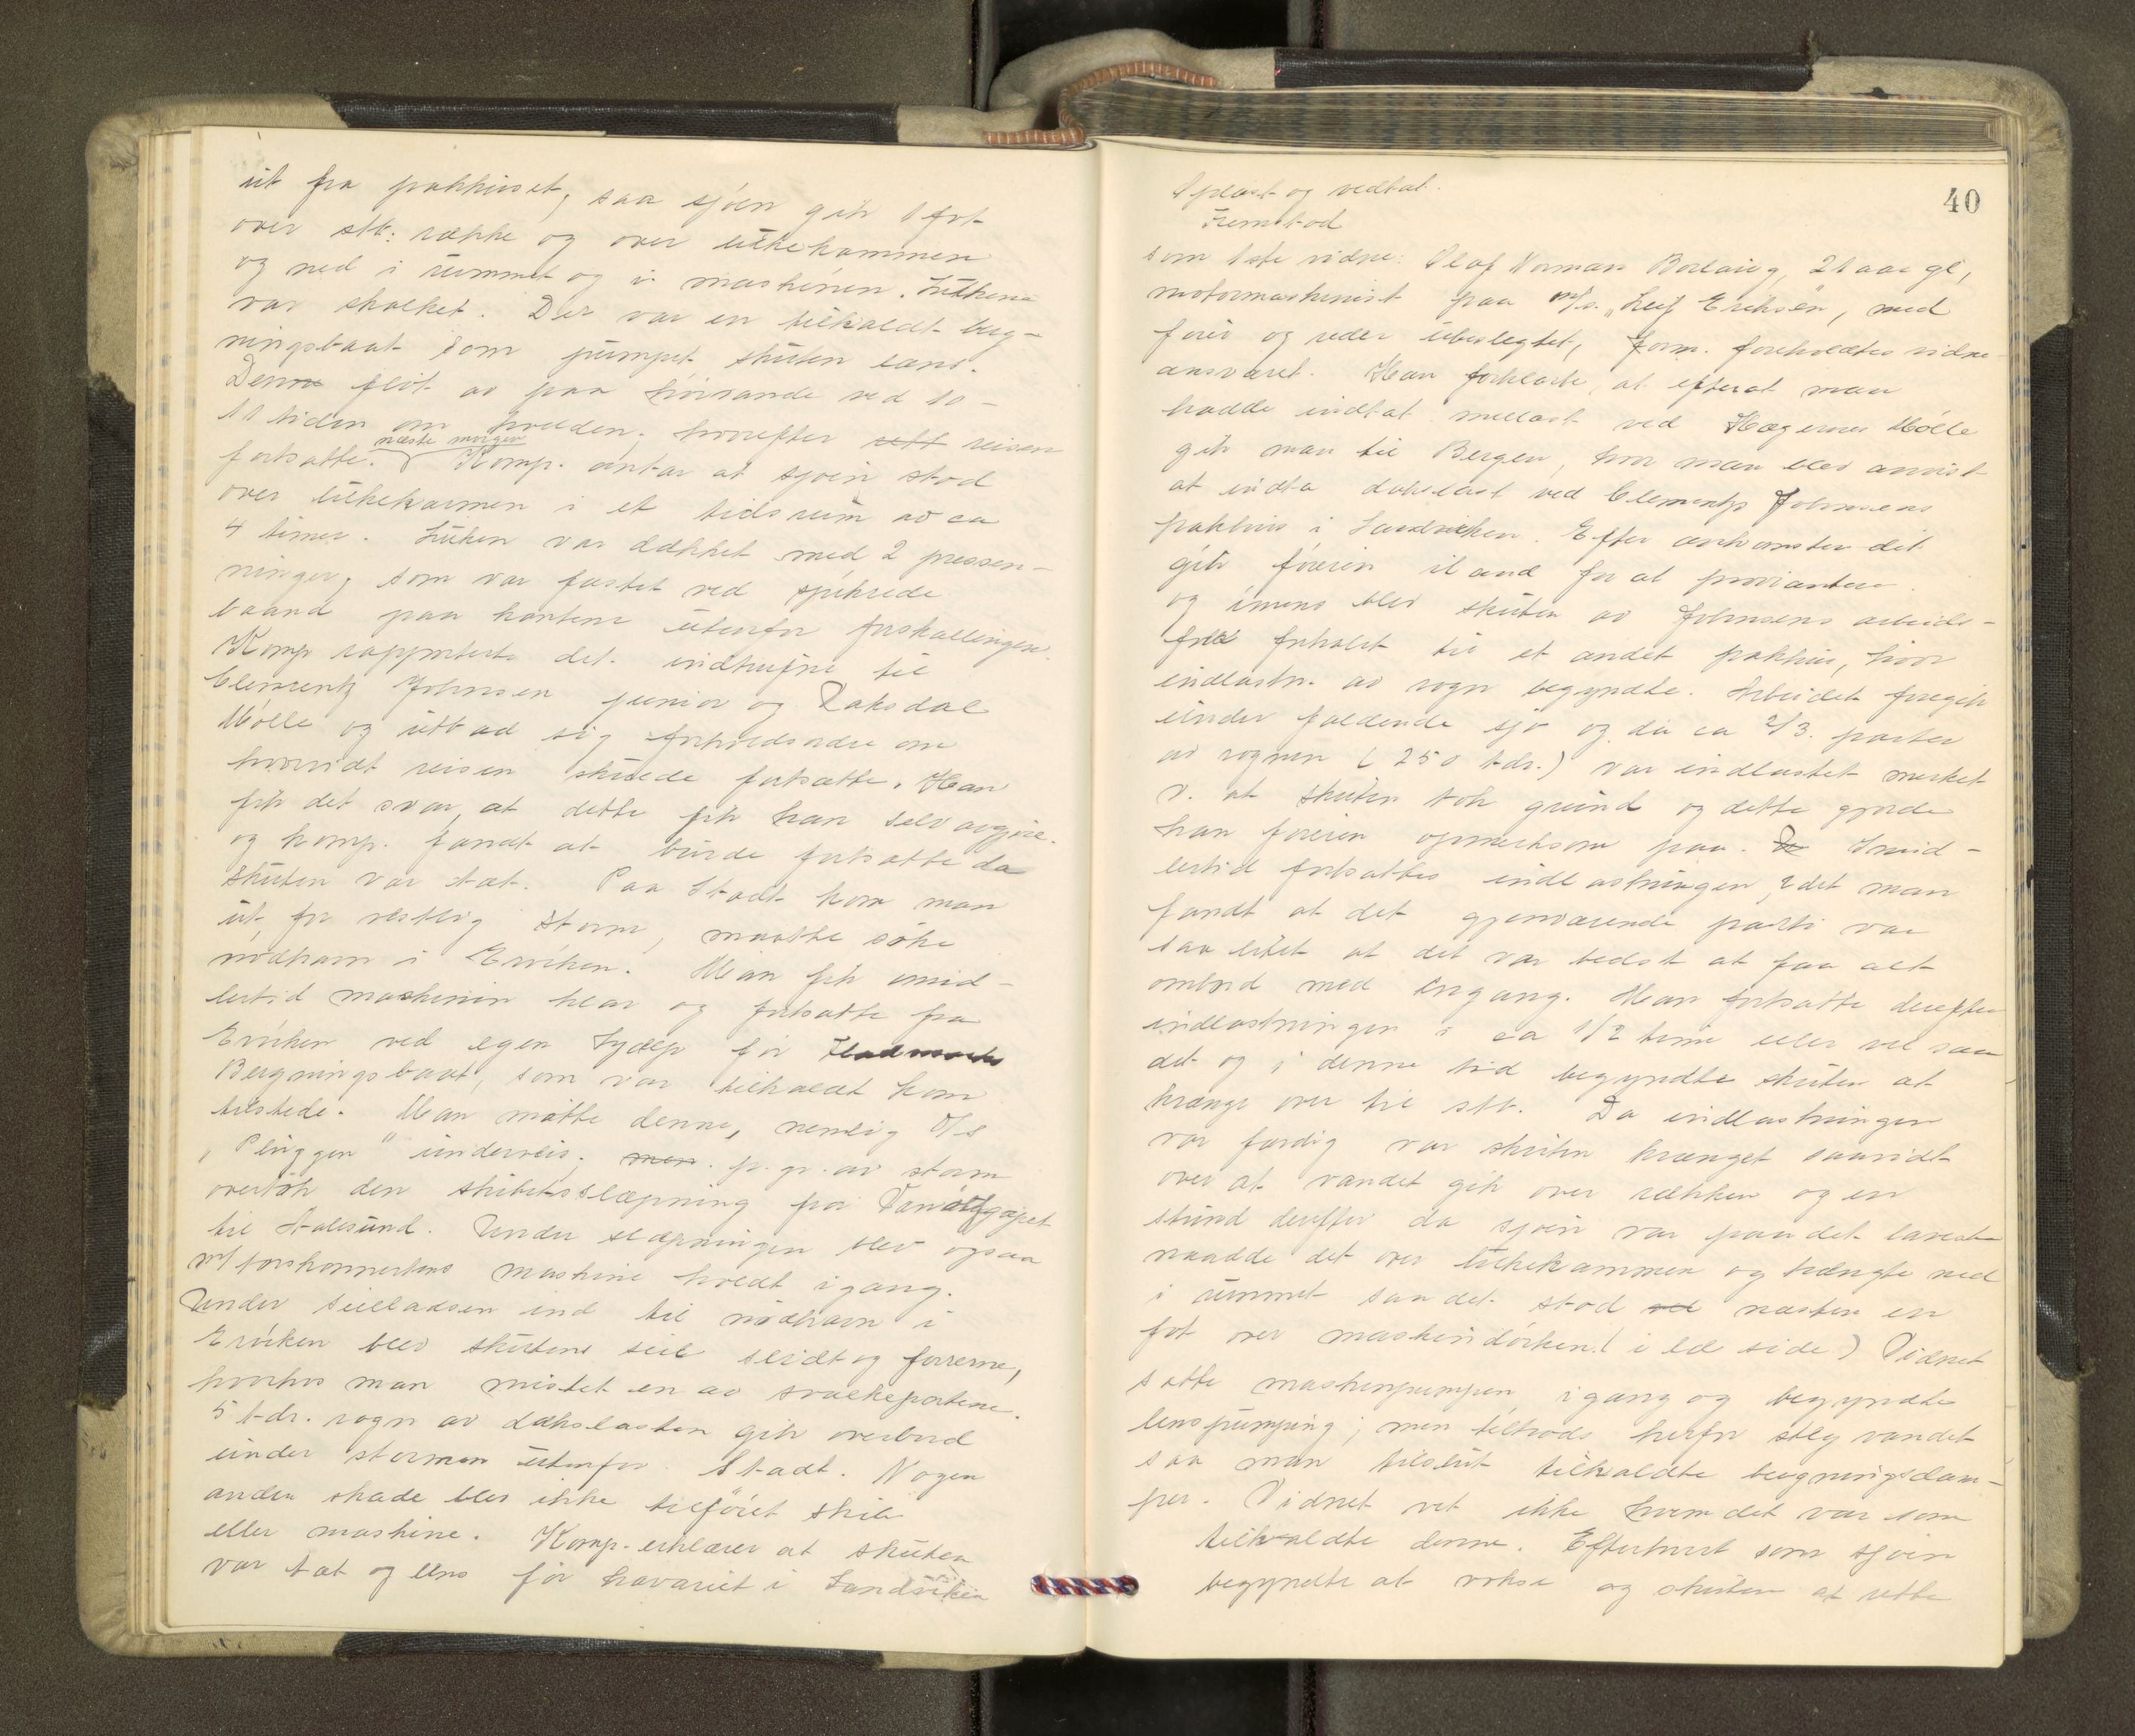 ut fra pakhuset, saa sjøen gik 1 fot
over stb: række og over lukekarmen
og ned i rummet og i maskinen. Lukene
var skalket. Der var en tilkaldt berg-
ningsbaat som pumpet skuten lens.
Denne fløt av paa høivande ved 10-
11 tiden om kvelden, hvorefter sett reisen
næste morgen
fortsatte. Komp. antar at sjøen stod
over lukekarmen i et tidsrum av ca
4 timer. Luken var dækket med 2 pressen-
ninger, som var fæstet ved spikrede
baand paa kantene utenfor forskallingen.
Komp rapporterte det indtrufne til
Clementz Johnsen junior og Vaksdal
Mølle og utbad sig forholdsordre om
hvorvidt reisen skulde fortsætte. Han
fik det svar, at dette fik han selv avgjøre.
og komp. fandt at burde fortsætte da
skuten var tæt. Paa Stadt kom man
ut for vestlig storm, maatte søke
nødhavn i Ervíken. Man fik imid-
lertid maskinen klar og fortsatte fra
Erviken ved egen hjælp før
Bergningsbaat, som var tilkaldt kom
tilstede. Man møtte denne, nemlig D/S
"Pluggen" underveis, men p. gr. av storm
overtok den skibets slæpning fra
til Aalesund. Under slæpningen blev ogsaa
m/ forskonnertens maskine holdt igang.
Under seilladsen ind til nødhavn i
Erviken blev skutens seil slidt og forrevne,
hvorhos man mistet en av svalkeportene.
5 tdr. rogn av dækslasten gik overbord
under stormen utenfor Stadt. Nogen
anden skade blev ikke tilføiet skib
eller maskine. Komp. erklærer at skuten
var tæt og lens før havariet i Sandviken
40
Oplæst og vedtat.
Fremstod
som 1ste vidne: Olaf Norman Borlaug, 21 aar gl,
motormaskinist paa m/s. "Leif Erikson", med
fører og reder ubeslegtet, form. foreholdtes vidne-
ansvaret. Han forklarte, at efterat man
hadde indtat mellast ved Hægernes Mølle
gik man til Bergen, hvor man blev anvist
at indta dækslast ved Clementz Johnsens
pakhus i Sandviken. Efter ankomsten dit
gik føreren iland for at proviantere
og imens blev skuten av Johnsens arbeids-
folk forhalet til et andet pakhus, hvor
indlastn. av rogn begyndte. Arbeidet foregik
under faldende sjø og da ca 2/3 parter
av rognen (250 tdr.) var indlastet merket
v. at skuten tok grund og dette gjorde
han føreren opmerksom paa. De Imid-
lertid fortsattes indlastningen, idet man
fandt at det gjenværende parti var
saa litet at det var bedst at faa alt
ombord med engang. Man fortsatte derefter
indlastningen i ca 1/2 time eller vel saa
det og i denne tid begyndte skuten at
krænge over til stb. Da indlastningen
var færdig var skuten krænget saavidt
over at vandet gik over rækken og en
stund derefter da sjøen var paa det laveste
naadde det over lukekarmen og trængte ned
i rummet saa det stod ved næsten en
fot over maskindørken (i læ side) Vidnet
satte maskinpumpen igang og begyndte
lenspumping; men tiltrods herfor steg vandet
saa man tilslut tilkaldte bergningsdam-
per. Vidnet vet ikke hvem det var som
tilkaldte denne. Efterhvert som sjøen
begyndte at vokse og skuten at rette